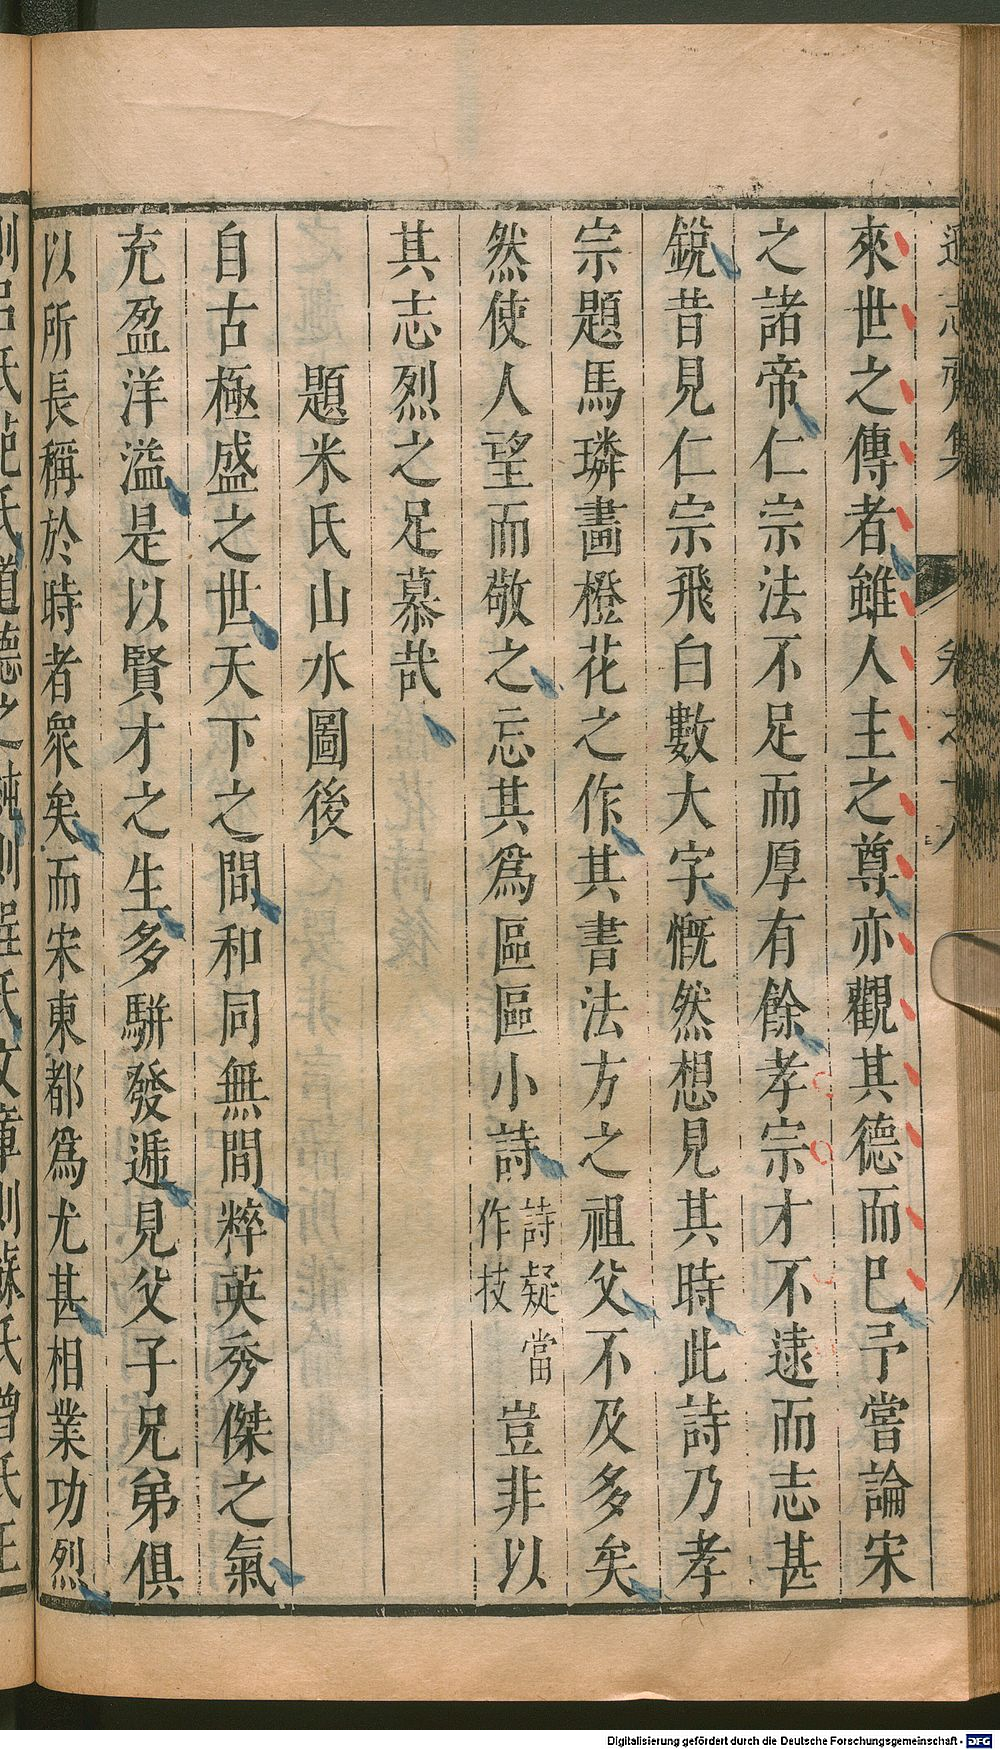 來世之傳者雖人主之尊亦觀其德而巳予嘗論宋
之諸帝仁宗法不足而厚有餘孝宗才不逺而志甚
銳昔見仁宗飛白數大字慨然想見其時此詩乃孝
宗題馬璘畫橙花之作其書法方之祖父不及多矣
然使人望而敬之忘其爲區區小詩詩疑當作技豈非以
其志烈之足慕哉
題米氏山水圖後
自古極盛之世天下之間和同無間粹英秀傑之氣
充盈洋溢是以賢才之生多駢發遞見父子兄弟俱
以所長稱於時者衆矣而宋東都爲尤甚相業功烈
則呂氏范氏道德之純則程氏文章則蘇氏曾氏王
Digitalisierung gefördert durch die Deutsche Forschungsgemeinschaft - DFG